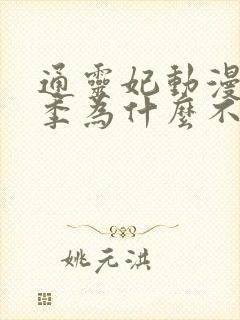 通靈妃動漫
季為什麼不
姚元洪